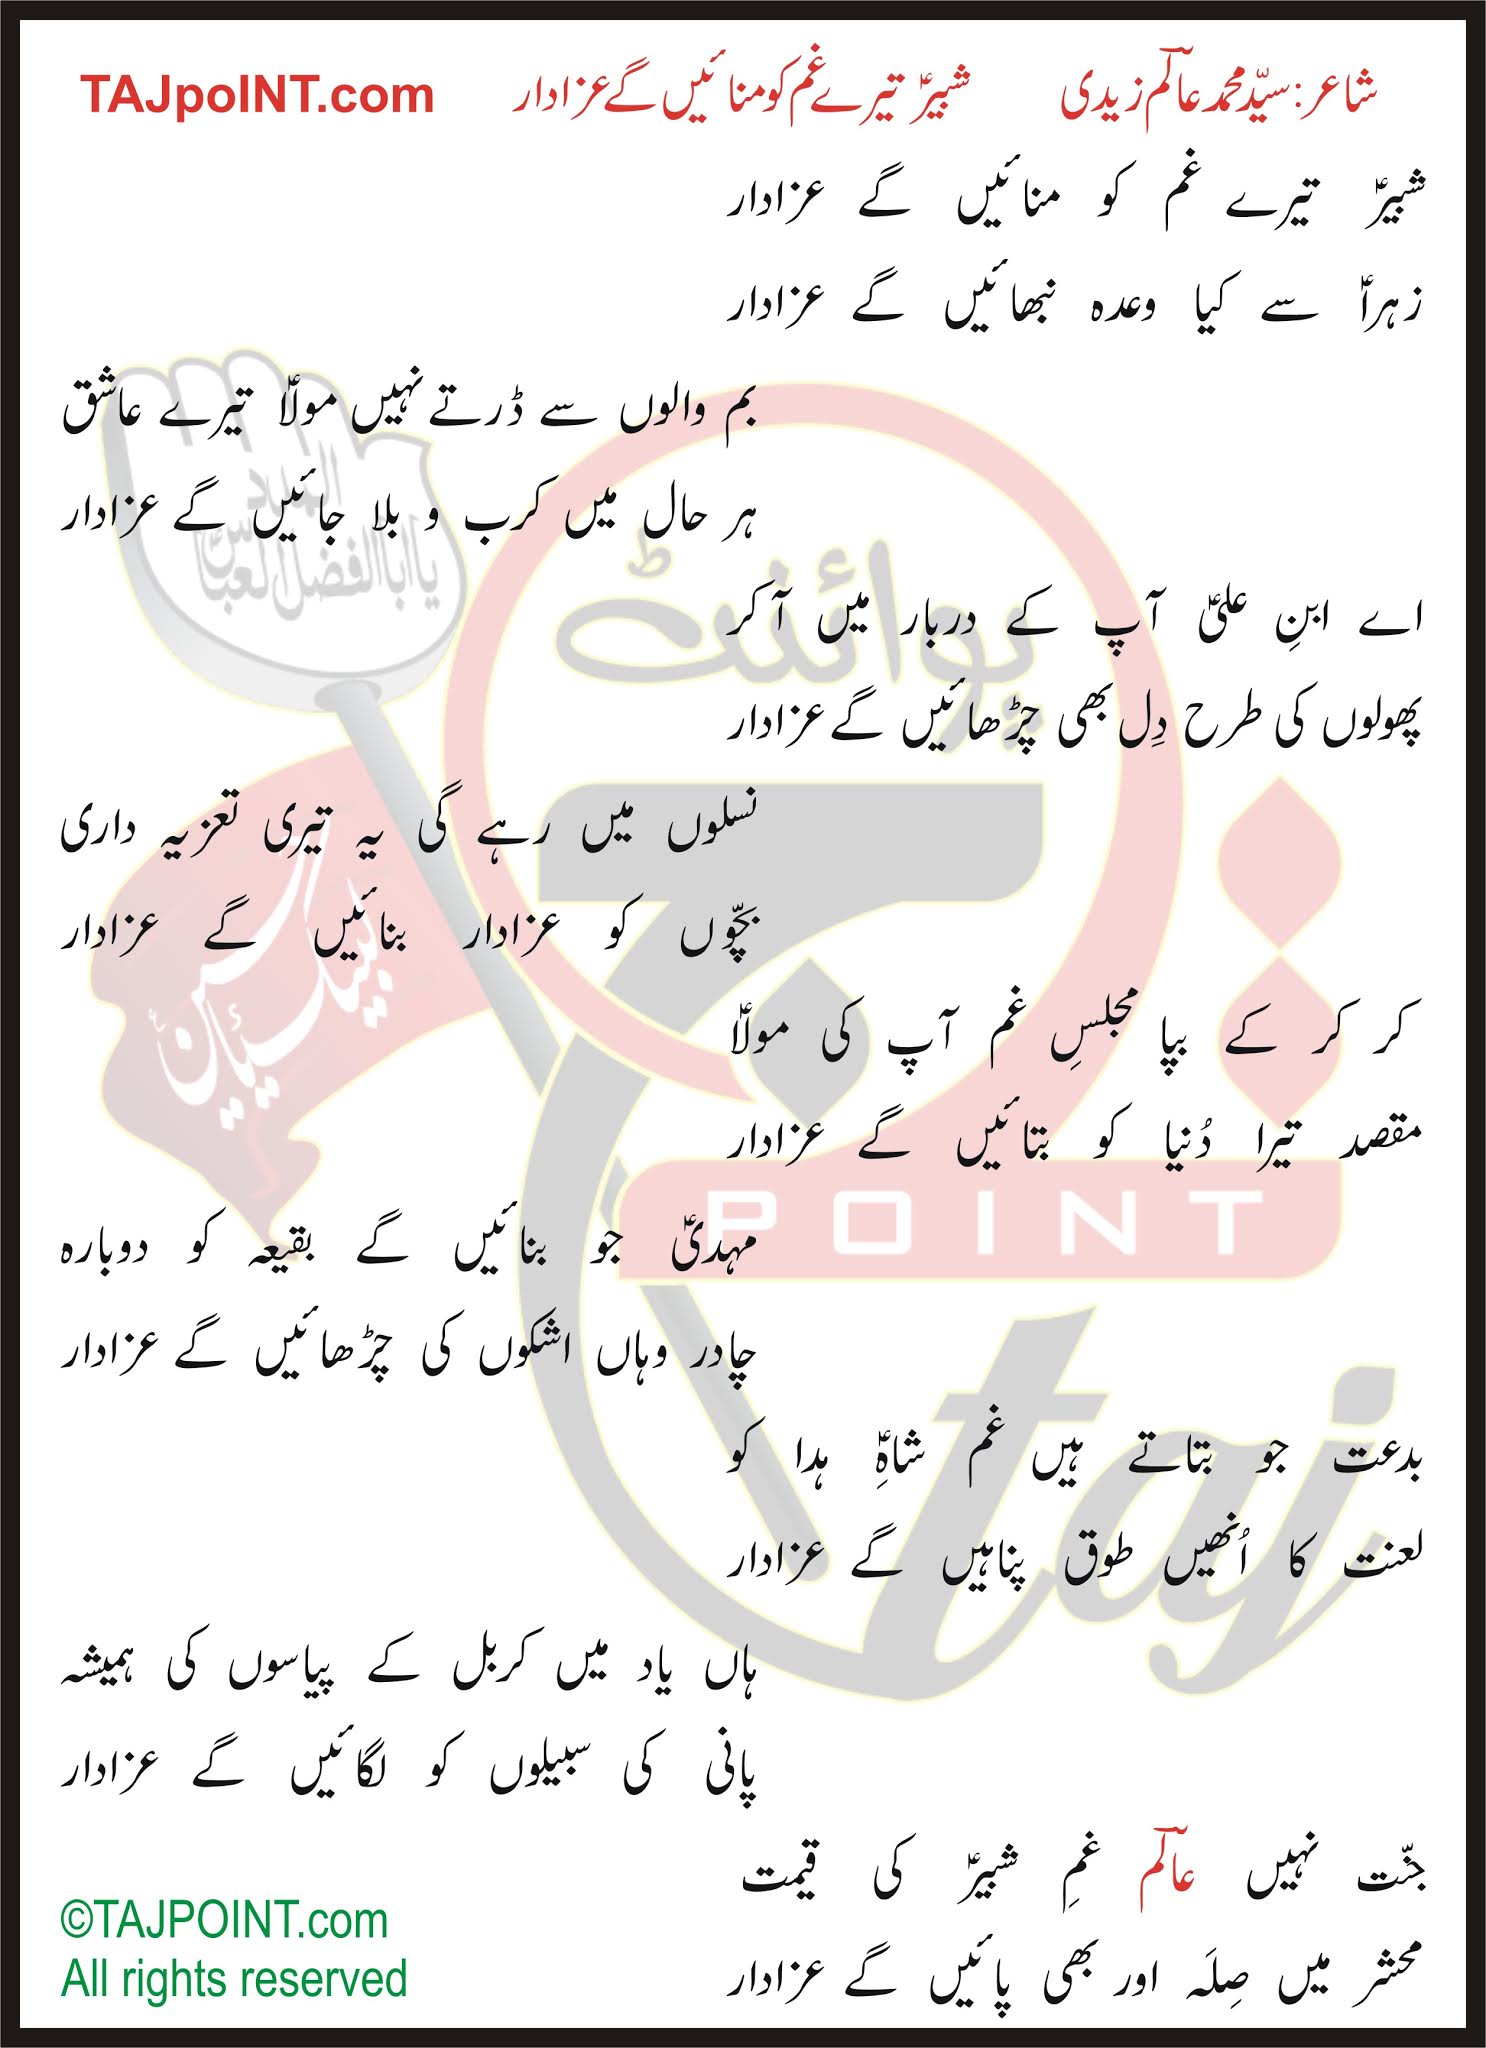 شاعر: سیّد محمد عالؔم زیدی شبیرؑ تیرے غم کو منائیں گے عزادار TAJpoINT.com
شبیرؑ تیرے غم کو منائیں گے عزادار
زہراؑ سے کیا وعدہ نبھائیں گے عزادار
بم والوں سے ڈرتے نہیں مولاؑ تیرے عاشق
ہر حال میں کرب و بلا جائیں گے عزادار
اے ابنِ علیؑ آپ کے دربار میں آ کر
پھولوں کی طرح دِل بھی چڑھائیں گے عزادار
نسلوں میں رہے گی یہ تیری تعزیہ داری
بچّوں کو عزادار بنائیں گے عزادار
کر کر کے بپا مجلسِ غم آپ کی مولاؑ
مقصد تیرا دُنیا کو بتائیں گے عزادار
مہدیؑ جو بنائیں گے بقیعہ کو دوبارہ
چادر وہاں اشکوں کی چڑھائیں گے عزادار
بدعت جو بتاتے ہیں غم شاہِؑ ہدا کو
لعنت کا اُنھیں طوق پناہیں گے عزادار
ہاں یاد میں کربل کے پیاسوں کی ہمیشہ
پانی کی سبیلوں کو لگائیں گے عزادار
جنّت نہیں عالؔم غمِ شبیرؑ کی قیمت
محشر میں صِلَہ اور بھی پائیں گے عزادار
©TAJPOINT.com
All rights reserved
یا ابالفضل العباسؑ
لبیک یا حسینؑ
پوائنٹ
تاج
POINT
taj